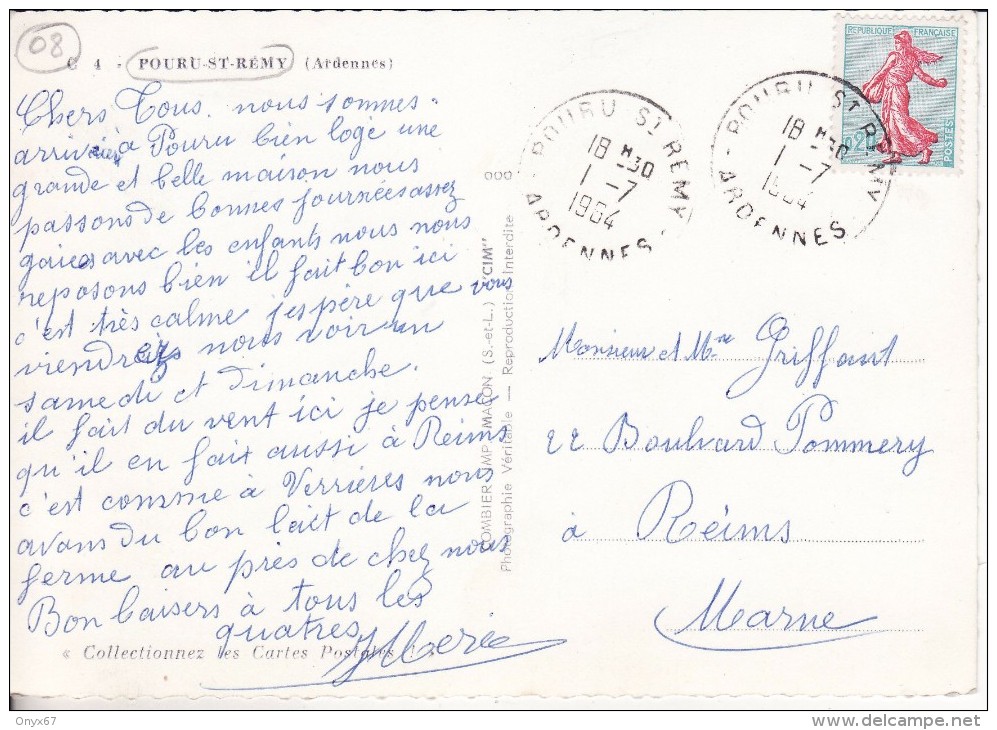 08
C 4 - POURU-ST-RÉMY (Ardennes)
Chers Tous nous sommes
arrivés à Pouru bien logé une
grande et belle maison nous
passons de bonnes journées assez
gaies avec les enfants nous nous
reposons bien il fait bon ici
c'est très calme j'espère que vous
viendrez nous voir un
samedi et Dimanche.
il fait du vent ici je pense
qu'il en fait aussi à Reims
c'est comme à Verrières nous
avons du bon lait de la
ferme au près de chez nous
Bon baisers à tous les
quatres
« Collectionnez les Cartes Postales
COMBIER IMP. MACON (S.-et-L.) "CIM"
Photographie Véritable — Reproduction Interdite
POURU ST REMY
18 H30
1 -7
1964
ARDENNES
POURU ST REMY
18 H30
1 -7
1964
ARDENNES
REPUBLIQUE FRANÇAISE
0,20
POSTES
Monsieur et Mme Griffaut
22 Boulvard Pommery
à Reims
Marne
Onyx67
www.delcampe.net